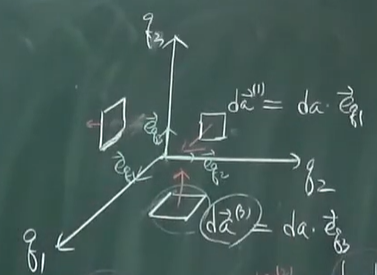 q₃
da⃗⁽¹⁾ = da · e⃗_q₁
e⃗_q₃
e⃗_q₁
e⃗_q₂
q₂
da⃗⁽³⁾ = da · e⃗_q₃
q₁